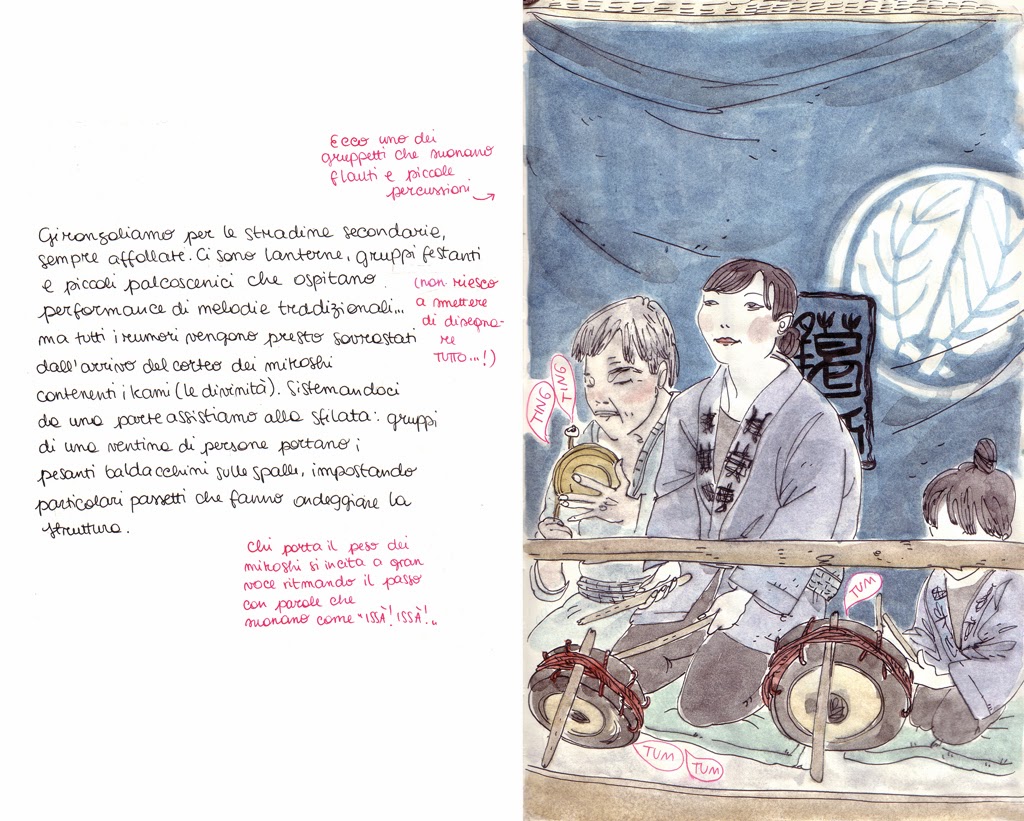 Ecco uno dei
gruppetti che suonano
flauti e piccole
percussioni
Gironzoliamo per le stradine secondarie,
sempre affollate. Ci sono lanterne, gruppi festanti
e piccoli palcoscenici che ospitano
performance di melodie tradizionali...
ma tutti i rumori vengono presto sovrastati
dall'arrivo del corteo dei mikoshi
contenenti i kami (le divinità). Sistemandoci
da una parte assistiamo alla sfilata: gruppi
di una ventina di persone portano i
pesanti baldacchini sulle spalle, impostando
particolari passetti che fanno ondeggiare la
struttura.
(non riesco
a smettere
di disegna-
re
TUTTO...!)
Chi porta il peso dei
mikoshi si incita a gran
voce ritmando il passo
con parole che
suonano come "ISSÀ! ISSÀ!"
TING
TING
TUM
TUM
TUM